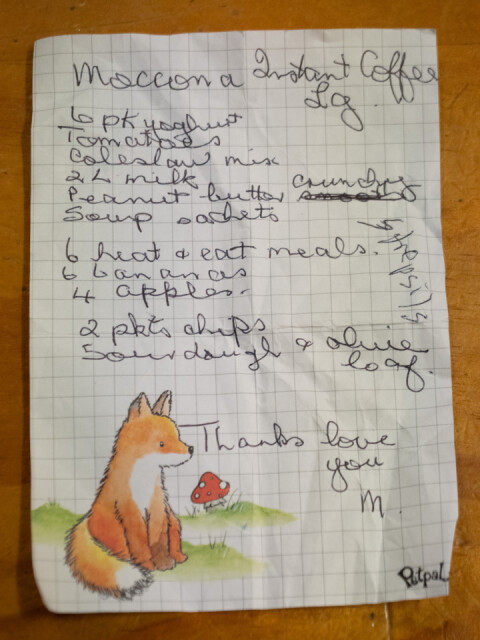 Moccona Instant Coffee
Lg.
6 pk yoghurt
Tomatoes
Coleslaw mix
2L milk
Peanut butter crunchy
Soup sachets
6 heat & eat meals.
6 bananas
4 apples.
2 pkts chips
Sourdough & olive
loaf.
Thanks love
you
M.
Patpal